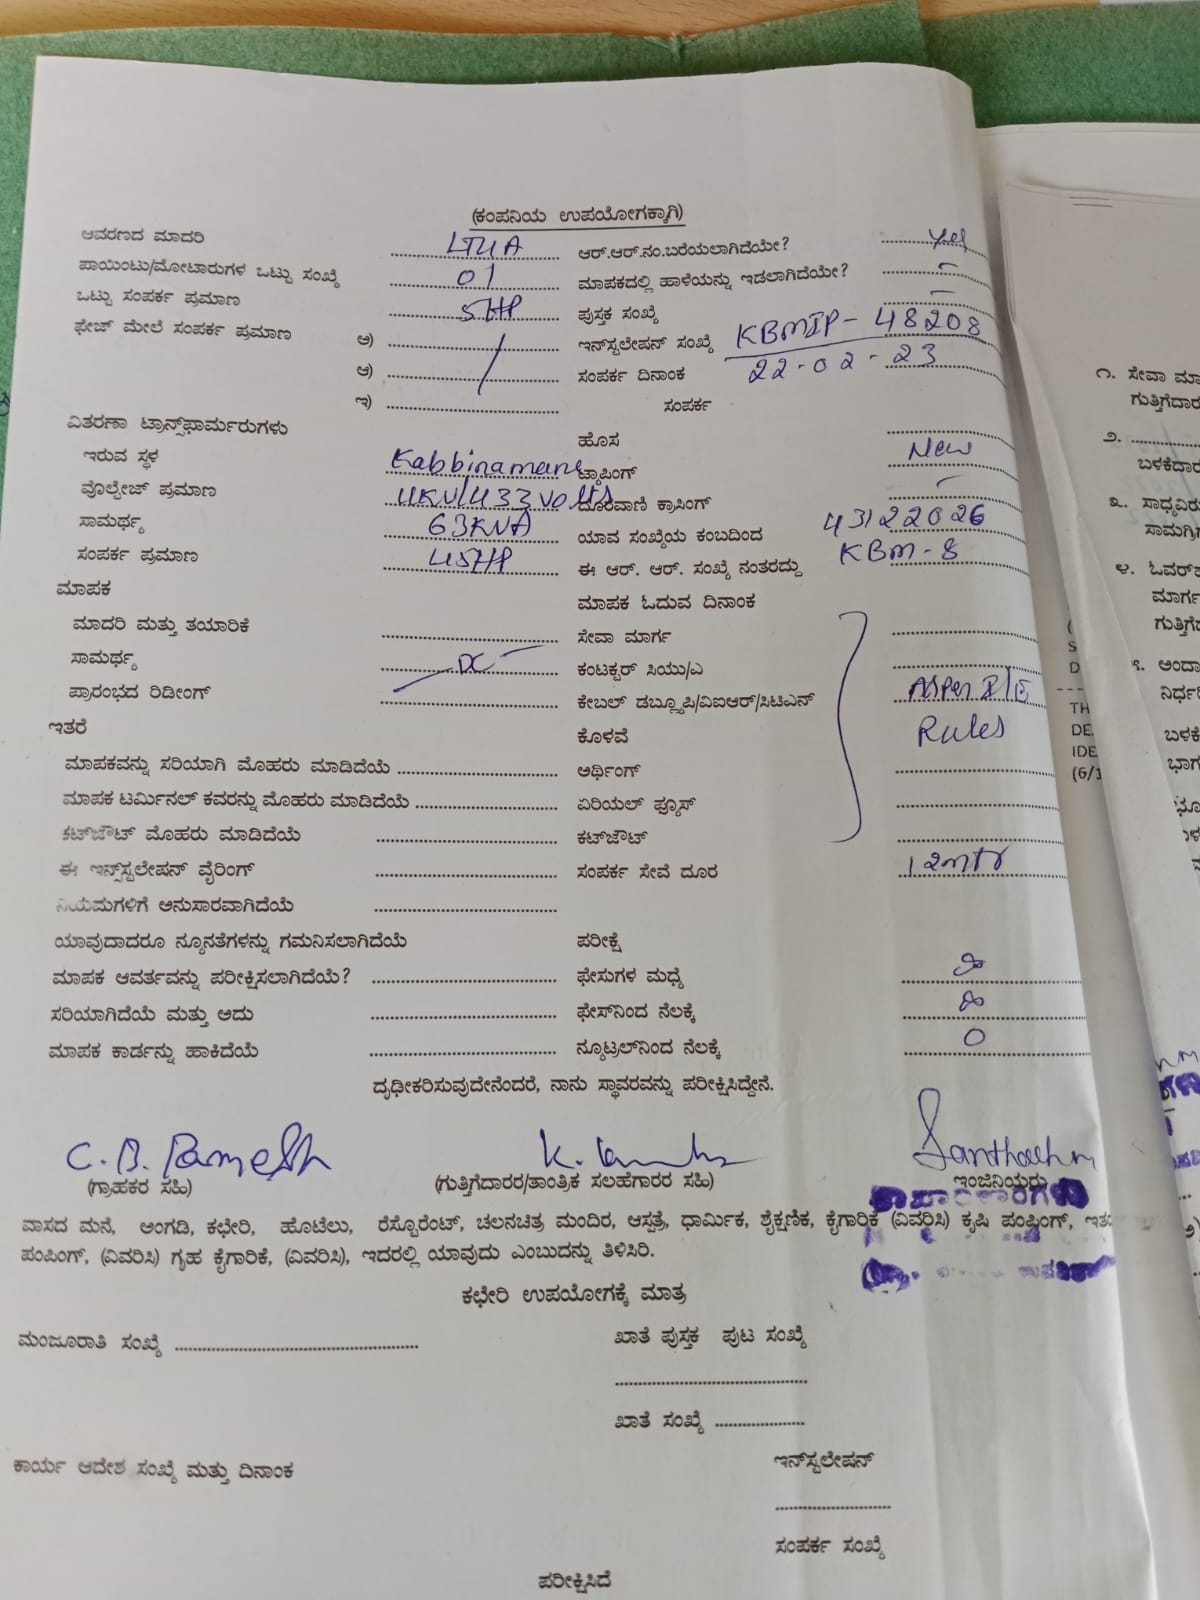 (ಕಂಪನಿಯ ಉಪಯೋಗಕ್ಕಾಗಿ)
ಆವರಣದ ಮಾದರಿ LT4A ಆರ್.ಆರ್.ನಂ.ಬರೆಯಲಾಗಿದೆಯೇ? yes
ಪಾಯಿಂಟು/ಮೋಟಾರುಗಳ ಒಟ್ಟು ಸಂಖ್ಯೆ 01 ಮಾಪಕದಲ್ಲಿ ಹಾಳೆಯನ್ನು ಇಡಲಾಗಿದೆಯೇ? -
ಒಟ್ಟು ಸಂಪರ್ಕ ಪ್ರಮಾಣ 5HP ಪುಸ್ತಕ ಸಂಖ್ಯೆ -
ಫೇಜ್ ಮೇಲೆ ಸಂಪರ್ಕ ಪ್ರಮಾಣ ಅ) ಇನ್‌ಸ್ಟಲೇಷನ್ ಸಂಖ್ಯೆ KBMIP-48208
ಆ) ಸಂಪರ್ಕ ದಿನಾಂಕ 22-02-23
ಇ) ಸಂಪರ್ಕ
ವಿತರಣಾ ಟ್ರಾನ್ಸ್‌ಫಾರ್ಮರುಗಳು ಹೊಸ New
ಇರುವ ಸ್ಥಳ Kabbinamane ಟ್ಯಾಪಿಂಗ್ -
ವೊಲ್ಟೇಜ್ ಪ್ರಮಾಣ 11KV/433 volts ದೂರವಾಣಿ ಕ್ರಾಸಿಂಗ್
ಸಾಮರ್ಥ್ಯ 63KVA ಯಾವ ಸಂಖ್ಯೆಯ ಕಂಬದಿಂದ 43122026
ಸಂಪರ್ಕ ಪ್ರಮಾಣ 45HP ಈ ಆರ್. ಆರ್. ಸಂಖ್ಯೆ ನಂತರದ್ದು KBM-8
ಮಾಪಕ ಮಾಪಕ ಓದುವ ದಿನಾಂಕ
ಮಾದರಿ ಮತ್ತು ತಯಾರಿಕೆ ಸೇವಾ ಮಾರ್ಗ
ಸಾಮರ್ಥ್ಯ DC ಕಂಟಕ್ಟರ್ ಸಿಯು/ಎ
ಪ್ರಾರಂಭದ ರಿಡೀಂಗ್ ಕೇಬಲ್ ಡಬ್ಲ್ಯೂಪಿ/ವಿಐಆರ್/ಸಿಟಿಎನ್ As per I/E
ಇತರೆ ಕೊಳವೆ Rules
ಮಾಪಕವನ್ನು ಸರಿಯಾಗಿ ಮೊಹರು ಮಾಡಿದೆಯೆ ಅರ್ಥಿಂಗ್
ಮಾಪಕ ಟರ್ಮಿನಲ್ ಕವರನ್ನು ಮೊಹರು ಮಾಡಿದೆಯೆ ಏರಿಯಲ್ ಫ್ಯೂಸ್
ಕಟ್‌ಜೌಟ್ ಮೊಹರು ಮಾಡಿದೆಯೆ ಕಟ್‌ಜೌಟ್
ಈ ಇನ್ಸ್‌ಸ್ಟಲೇಷನ್ ವೈರಿಂಗ್ ಸಂಪರ್ಕ ಸೇವೆ ದೂರ 12mtr
ನಿಯಮಗಳಿಗೆ ಅನುಸಾರವಾಗಿದೆಯೆ
ಯಾವುದಾದರೂ ನ್ಯೂನತೆಗಳನ್ನು ಗಮನಿಸಲಾಗಿದೆಯೆ ಪರೀಕ್ಷೆ
ಮಾಪಕ ಆವರ್ತವನ್ನು ಪರೀಕ್ಷಿಸಲಾಗಿದೆಯೆ? ಫೇಸುಗಳ ಮಧ್ಯೆ ∞
ಸರಿಯಾಗಿದೆಯೆ ಮತ್ತು ಅದು ಫೇಸ್‌ನಿಂದ ನೆಲಕ್ಕೆ ∞
ಮಾಪಕ ಕಾರ್ಡನ್ನು ಹಾಕಿದೆಯೆ ನ್ಯೂಟ್ರಲ್‌ನಿಂದ ನೆಲಕ್ಕೆ 0
ದೃಢೀಕರಿಸುವುದೇನೆಂದರೆ, ನಾನು ಸ್ಥಾವರವನ್ನು ಪರೀಕ್ಷಿಸಿದ್ದೇನೆ.
C.B. Ramesh
(ಗ್ರಾಹಕರ ಸಹಿ) (ಗುತ್ತಿಗೆದಾರರ/ತಾಂತ್ರಿಕ ಸಲಹೆಗಾರರ ಸಹಿ) ಇಂಜಿನಿಯರು
ವಾಸದ ಮನೆ, ಅಂಗಡಿ, ಕಛೇರಿ, ಹೊಟೆಲು, ರೆಸ್ಟೊರೆಂಟ್, ಚಲನಚಿತ್ರ ಮಂದಿರ, ಆಸ್ಪತ್ರೆ, ಧಾರ್ಮಿಕ, ಶೈಕ್ಷಣಿಕ, ಕೈಗಾರಿಕೆ (ವಿವರಿಸಿ) ಕೃಷಿ ಪಂಪ್ಪಿಂಗ್,
ಪಂಪಿಂಗ್, (ವಿವರಿಸಿ) ಗೃಹ ಕೈಗಾರಿಕೆ, (ವಿವರಿಸಿ), ಇದರಲ್ಲಿ ಯಾವುದು ಎಂಬುದನ್ನು ತಿಳಿಸಿರಿ.
ಕಛೇರಿ ಉಪಯೋಗಕ್ಕೆ ಮಾತ್ರ
ಮಂಜೂರಾತಿ ಸಂಖ್ಯೆ ಖಾತೆ ಪುಸ್ತಕ ಪುಟ ಸಂಖ್ಯೆ
ಖಾತೆ ಸಂಖ್ಯೆ
ಕಾರ್ಯ ಆದೇಶ ಸಂಖ್ಯೆ ಮತ್ತು ದಿನಾಂಕ ಇನ್‌ಸ್ಟಲೇಷನ್
ಸಂಪರ್ಕ ಸಂಖ್ಯೆ
ಪರೀಕ್ಷಿಸಿದೆ
೧. ಸೇವಾ
೨.
೩.
೪.